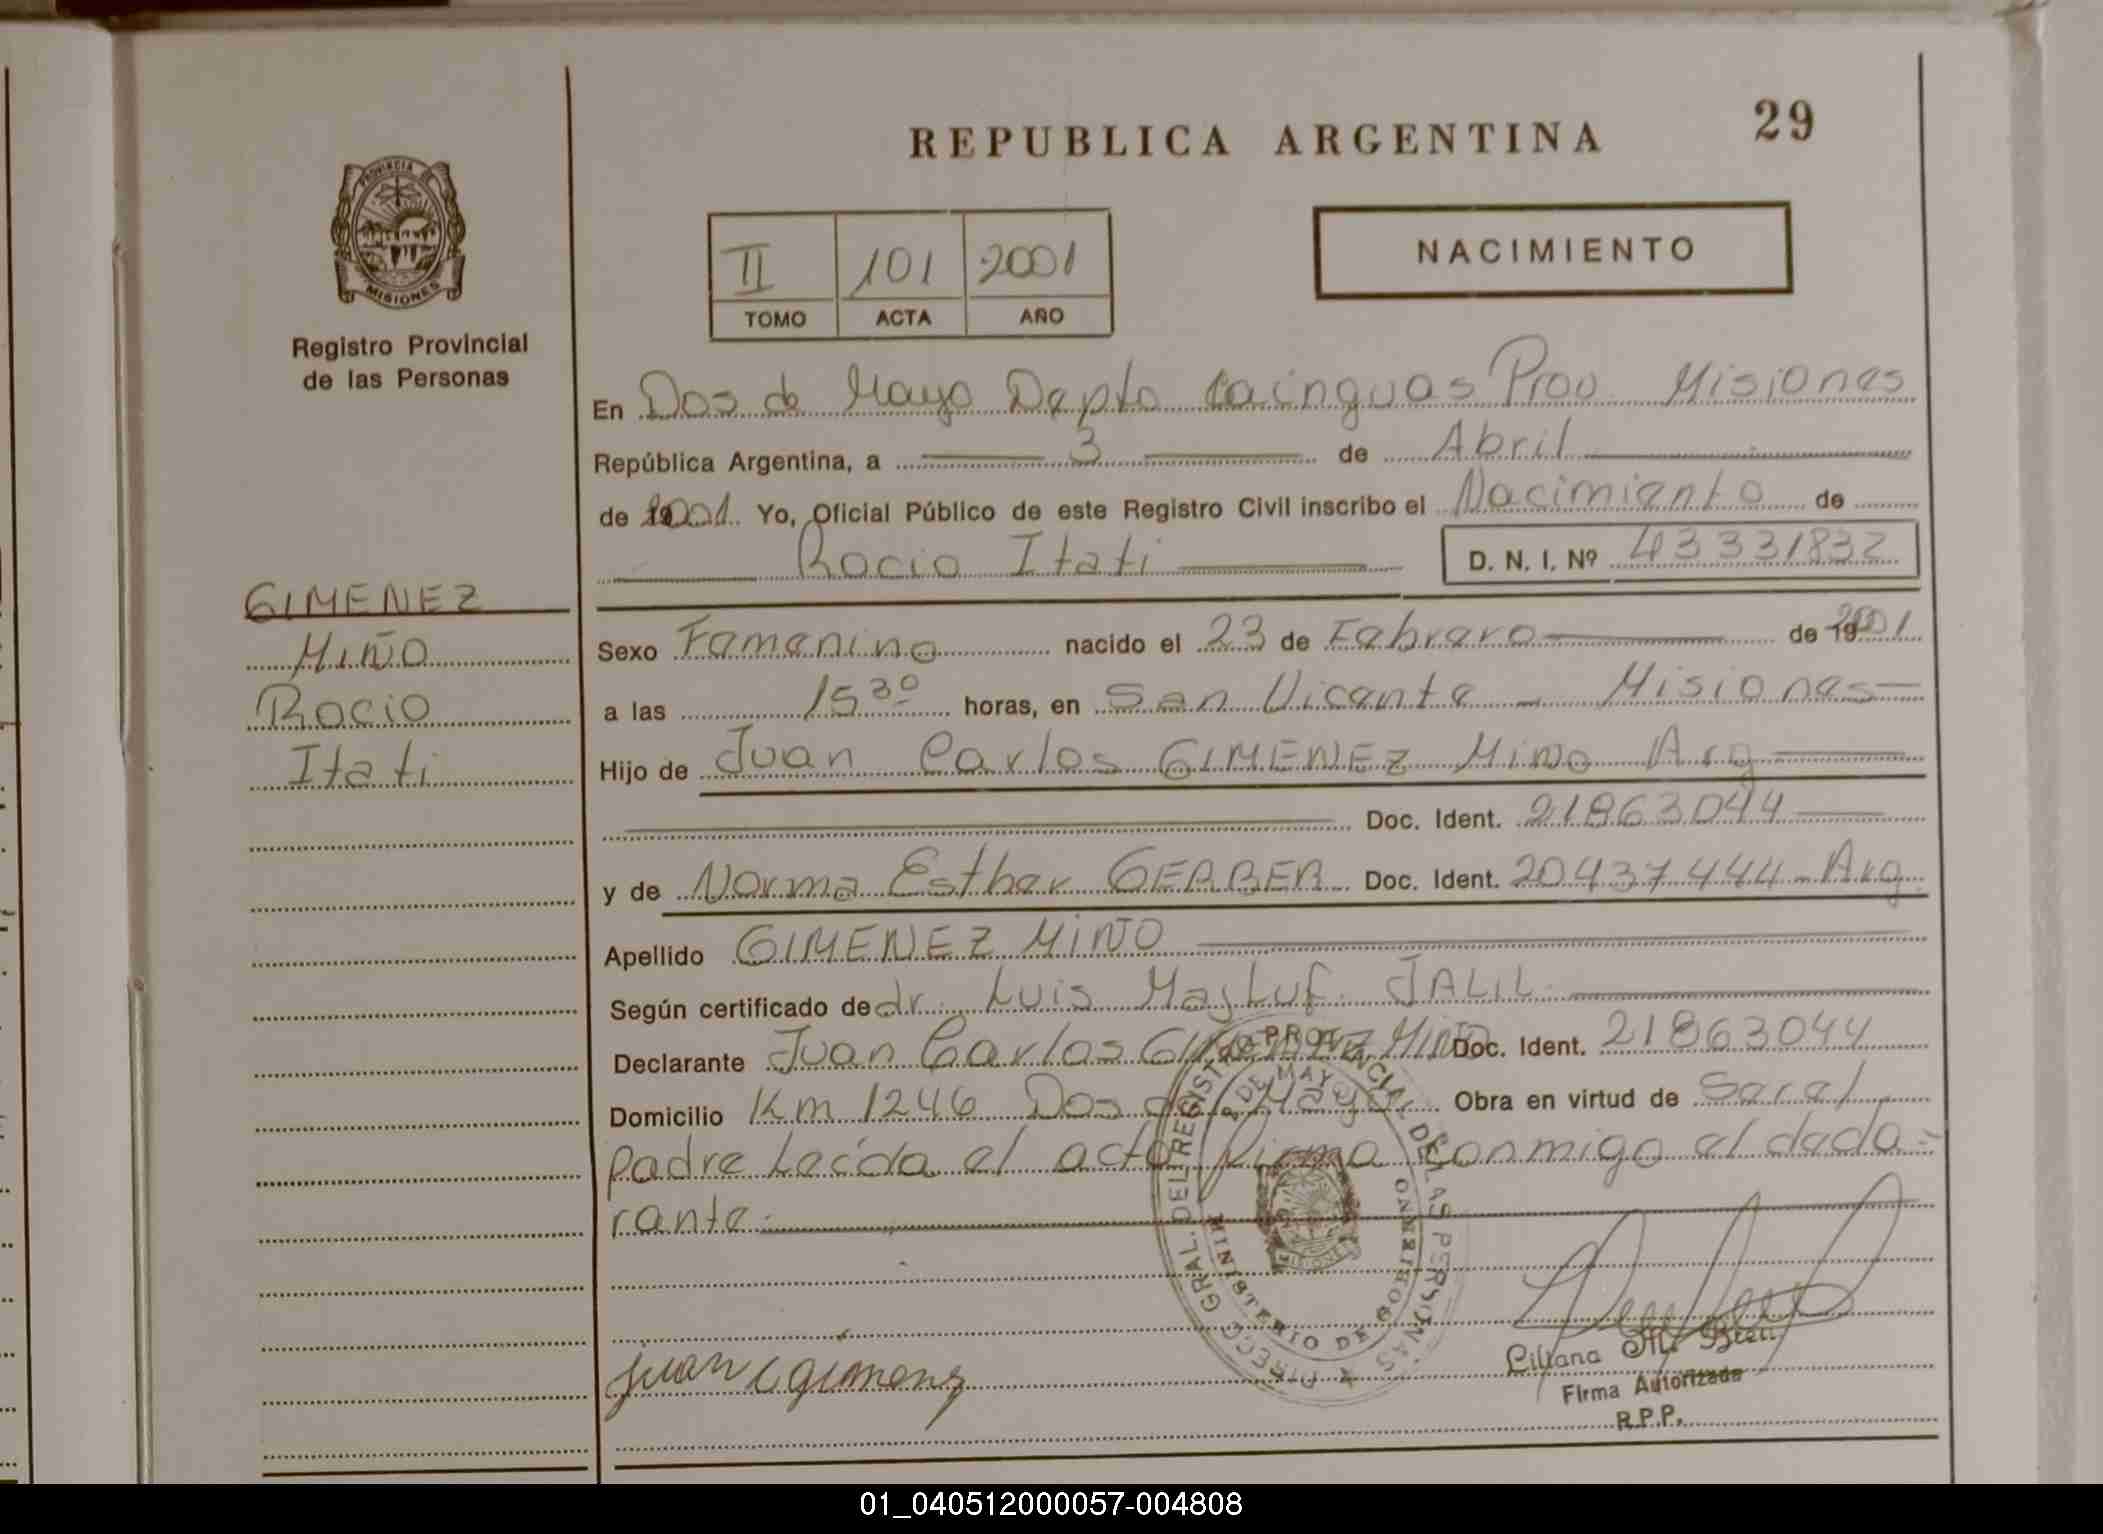 REPUBLICA ARGENTINA
29
PROVINCIA DE
MISIONES
Registro Provincial
de las Personas
II 101 2001
TOMO ACTA AÑO
NACIMIENTO
En Dos de Mayo Depto Cainguas Prov. Misiones
República Argentina, a 3 de Abril
de 2001. Yo, Oficial Público de este Registro Civil inscribo el Nacimiento de
Rocio Itati D. N. I. Nº 43331832
GIMENEZ
MIÑO
Rocio
Itati
Sexo Femenino nacido el 23 de Febrero de 2001
a las 15 30 horas, en San Vicente - Misiones
Hijo de Juan Carlos GIMENEZ MIÑO Arg
Doc. Ident. 21863044
y de Norma Esther GERBER Doc. Ident. 20437444 - Arg.
Apellido GIMENEZ MIÑO
Según certificado de dr. Luis Majluf JALIL
Declarante Juan Carlos GIMENEZ MIÑO Doc. Ident. 21863044
Domicilio Km 1246 Dos de Mayo Obra en virtud de Ser el
padre Leída el acta firma conmigo el decla-
rante.
DIRECC. GRAL. DEL REGISTRO PROVINCIAL DE LAS PERSONAS
2 DE MAYO
MINISTERIO DE GOBIERNO
juan C gimenez
Liliana M.
Firma Autorizada
R.P.P.
01_040512000057-004808